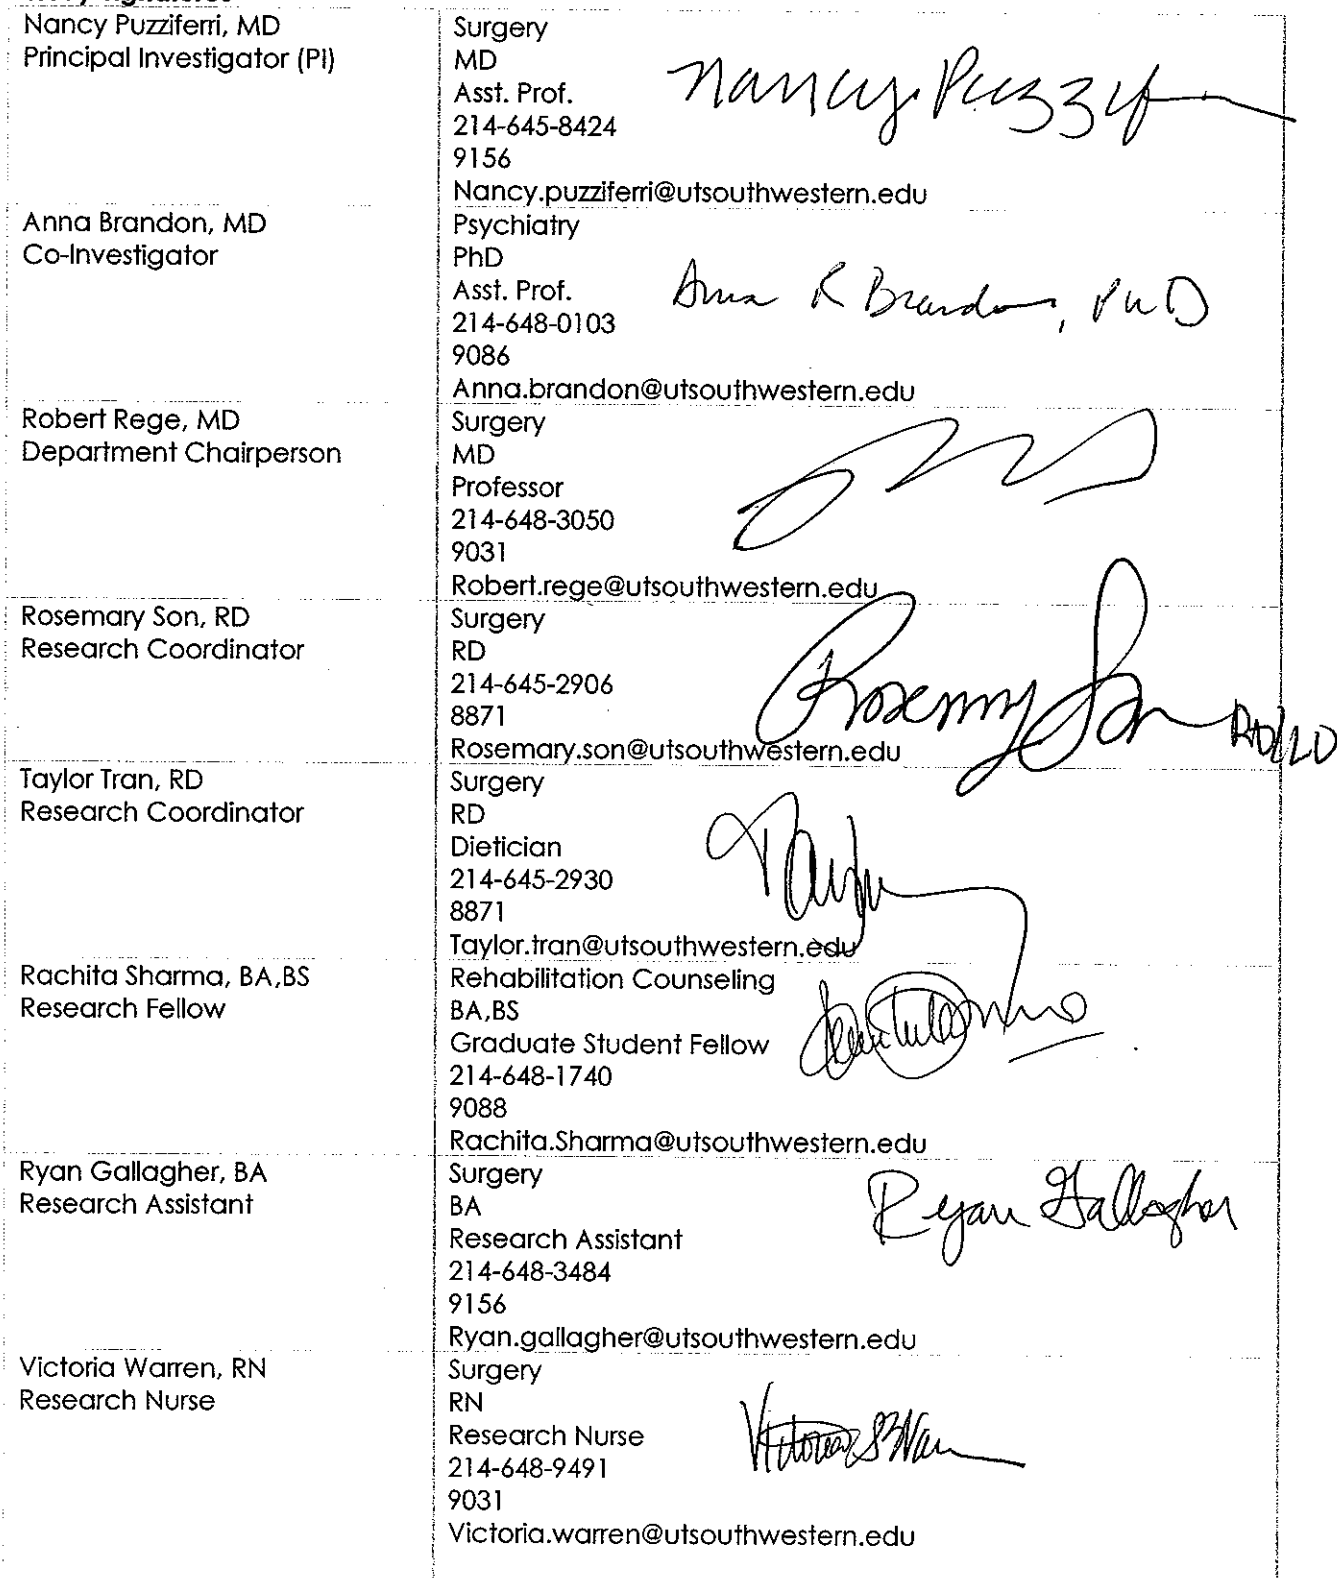 Nancy Puzziferri, MD
Principal Investigator (PI)
Surgery
MD
Asst. Prof.
214-645-8424
9156
Nancy.puzziferri@utsouthwestern.edu
Nancy Puzzif
Anna Brandon, MD
Co-Investigator
Psychiatry
PhD
Asst. Prof.
214-648-0103
9086
Anna.brandon@utsouthwestern.edu
Anna R Brandon, PhD
Robert Rege, MD
Department Chairperson
Surgery
MD
Professor
214-648-3050
9031
Robert.rege@utsouthwestern.edu
Rosemary Son, RD
Research Coordinator
Surgery
RD
214-645-2906
8871
Rosemary.son@utsouthwestern.edu
Rosemary Son RD/LD
Taylor Tran, RD
Research Coordinator
Surgery
RD
Dietician
214-645-2930
8871
Taylor.tran@utsouthwestern.edu
Taylor
Rachita Sharma, BA,BS
Research Fellow
Rehabilitation Counseling
BA,BS
Graduate Student Fellow
214-648-1740
9088
Rachita.Sharma@utsouthwestern.edu
Ryan Gallagher, BA
Research Assistant
Surgery
BA
Research Assistant
214-648-3484
9156
Ryan.gallagher@utsouthwestern.edu
Ryan Gallagher
Victoria Warren, RN
Research Nurse
Surgery
RN
Research Nurse
214-648-9491
9031
Victoria.warren@utsouthwestern.edu
Victoria